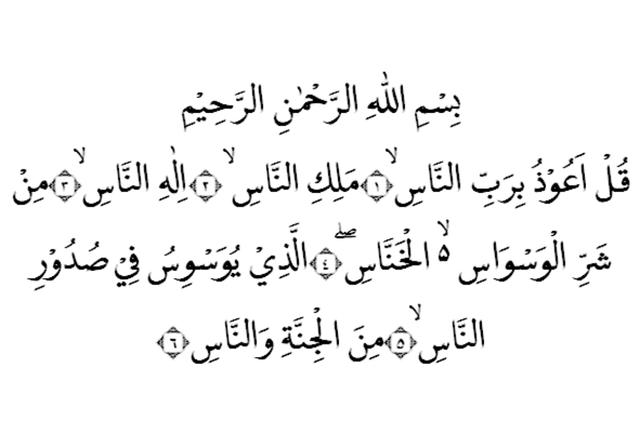 بِسْمِ اللّٰهِ الرَّحْمٰنِ الرَّحِيْمِ
قُلْ اَعُوْذُ بِرَبِّ النَّاسِۙ ١ مَلِكِ النَّاسِۙ ٢ اِلٰهِ النَّاسِۙ ٣ مِنْ
شَرِّ الْوَسْوَاسِ ۙ ۵ الْخَنَّاسِۖ ٤ الَّذِيْ يُوَسْوِسُ فِيْ صُدُوْرِ
النَّاسِۙ ۵ مِنَ الْجِنَّةِ وَالنَّاسِ ٦